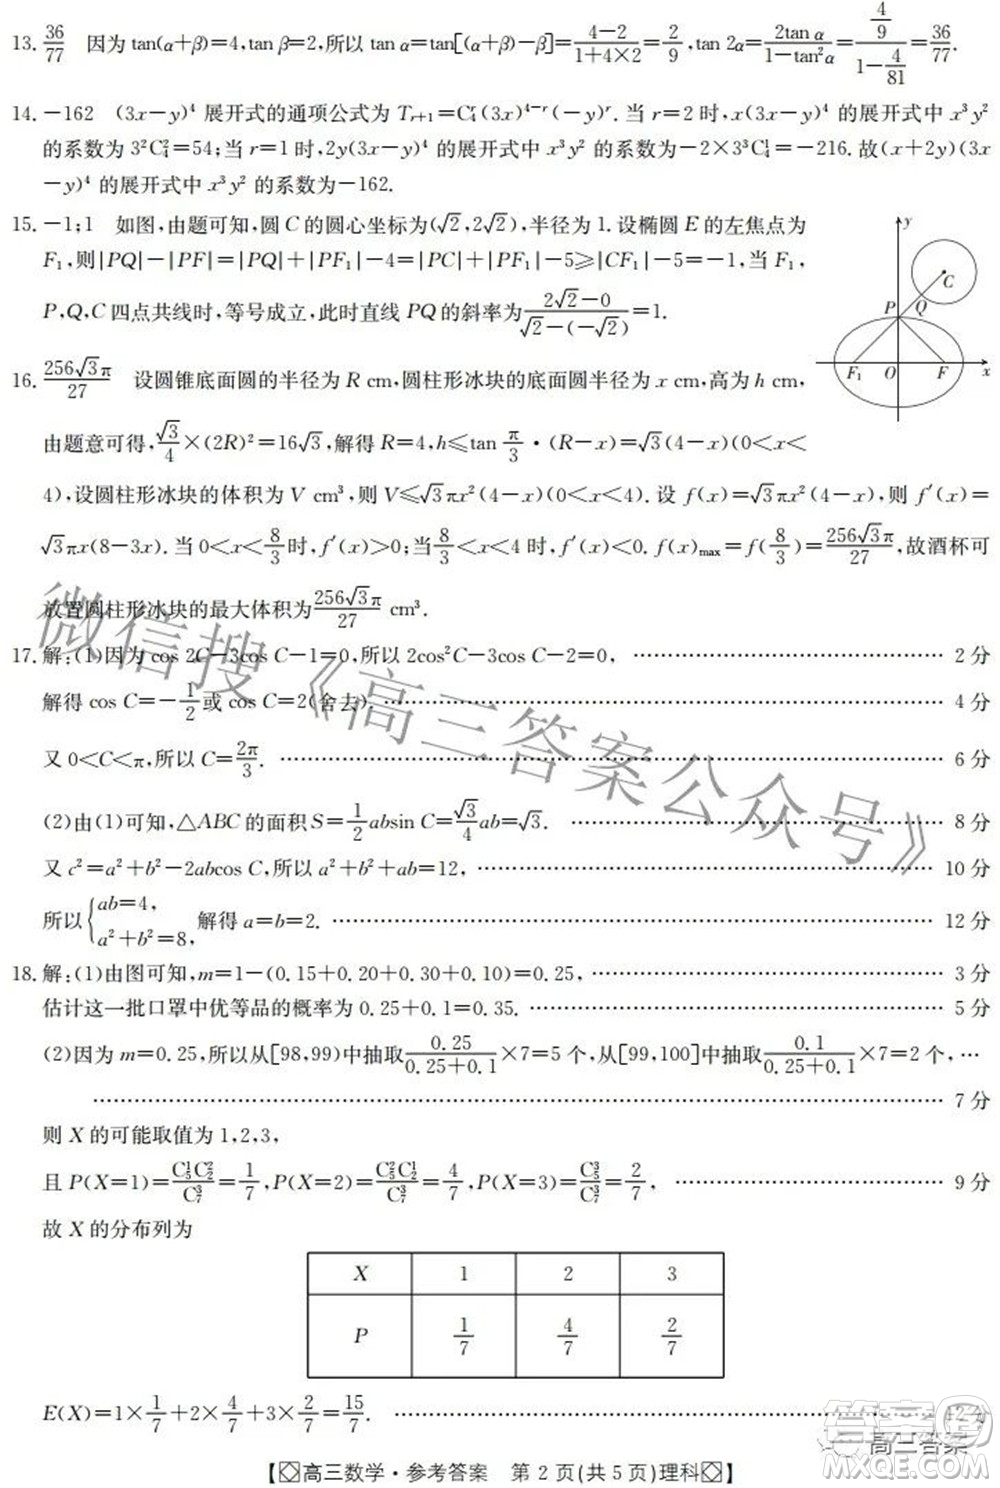 13. 36/77 因为 tan(α+β)=4, tan β=2, 所以 tan α=tan[(α+β)-β]=(4-2)/(1+4×2)=2/9, tan 2α=(2tan α)/(1-tan²α)=(4/9)/(1-4/81)=36/77.
14. -162 (3x-y)⁴ 展开式的通项公式为 Tᵣ₊₁=C₄ʳ(3x)⁴⁻ʳ(-y)ʳ. 当 r=2 时, x(3x-y)⁴ 的展开式中 x³y²
的系数为 3²C₄²=54; 当 r=1 时, 2y(3x-y)⁴ 的展开式中 x³y² 的系数为 -2×3³C₄¹=-216. 故(x+2y)(3x
-y)⁴ 的展开式中 x³y² 的系数为-162.
15. -1; 1 如图, 由题可知, 圆 C 的圆心坐标为(√2, 2√2), 半径为 1. 设椭圆 E 的左焦点为
F₁, 则|PQ|-|PF|=|PQ|+|PF₁|-4=|PC|+|PF₁|-5≥|CF₁|-5=-1, 当 F₁,
P, Q, C 四点共线时, 等号成立, 此时直线 PQ 的斜率为(2√2-0)/(√2-(-√2))=1.
y
C
P
Q
F₁
O
F
x
16. 256√3π/27 设圆锥底面圆的半径为 R cm, 圆柱形冰块的底面圆半径为 x cm, 高为 h cm,
由题意可得, √3/4×(2R)²=16√3, 解得 R=4, h≤tan π/3·(R-x)=√3(4-x)(0<x<
4), 设圆柱形冰块的体积为 V cm³, 则 V≤√3πx²(4-x)(0<x<4). 设 f(x)=√3πx²(4-x), 则 f′(x)=
√3πx(8-3x). 当 0<x<8/3时, f′(x)>0; 当8/3<x<4 时, f′(x)<0. f(x)max=f(8/3)=256√3π/27, 故酒杯可
放置圆柱形冰块的最大体积为256√3π/27 cm³.
17. 解: (1)因为 cos 2C-3cos C-1=0, 所以 2cos²C-3cos C-2=0, ………… 2 分
解得 cos C=-1/2或 cos C=2(舍去). ………… 4 分
又 0<C<π, 所以 C=2π/3. ………… 6 分
(2)由(1)可知, △ABC 的面积 S=1/2absin C=√3/4ab=√3. ………… 8 分
又 c²=a²+b²-2abcos C, 所以 a²+b²+ab=12, ………… 10 分
所以{ab=4, a²+b²=8, 解得 a=b=2. ………… 12 分
18. 解: (1)由图可知, m=1-(0.15+0.20+0.30+0.10)=0.25, ………… 3 分
估计这一批口罩中优等品的概率为 0.25+0.1=0.35. ………… 5 分
(2)因为 m=0.25, 所以从[98,99)中抽取0.25/(0.25+0.1)×7=5 个, 从[99,100]中抽取0.1/(0.25+0.1)×7=2 个, …
………… 7 分
则 X 的可能取值为 1,2,3,
且 P(X=1)=C₅¹C₂²/C₇³=1/7, P(X=2)=C₅²C₂¹/C₇³=4/7, P(X=3)=C₅³/C₇³=2/7, ………… 9 分
故 X 的分布列为
X 1 2 3
P 1/7 4/7 2/7
E(X)=1×1/7+2×4/7+3×2/7=15/7. ………… 12 分
【高三数学·参考答案 第 2 页(共 5 页)理科】
微信搜《高三答案公众号》
高三答案
答案圈
MXQE.COM